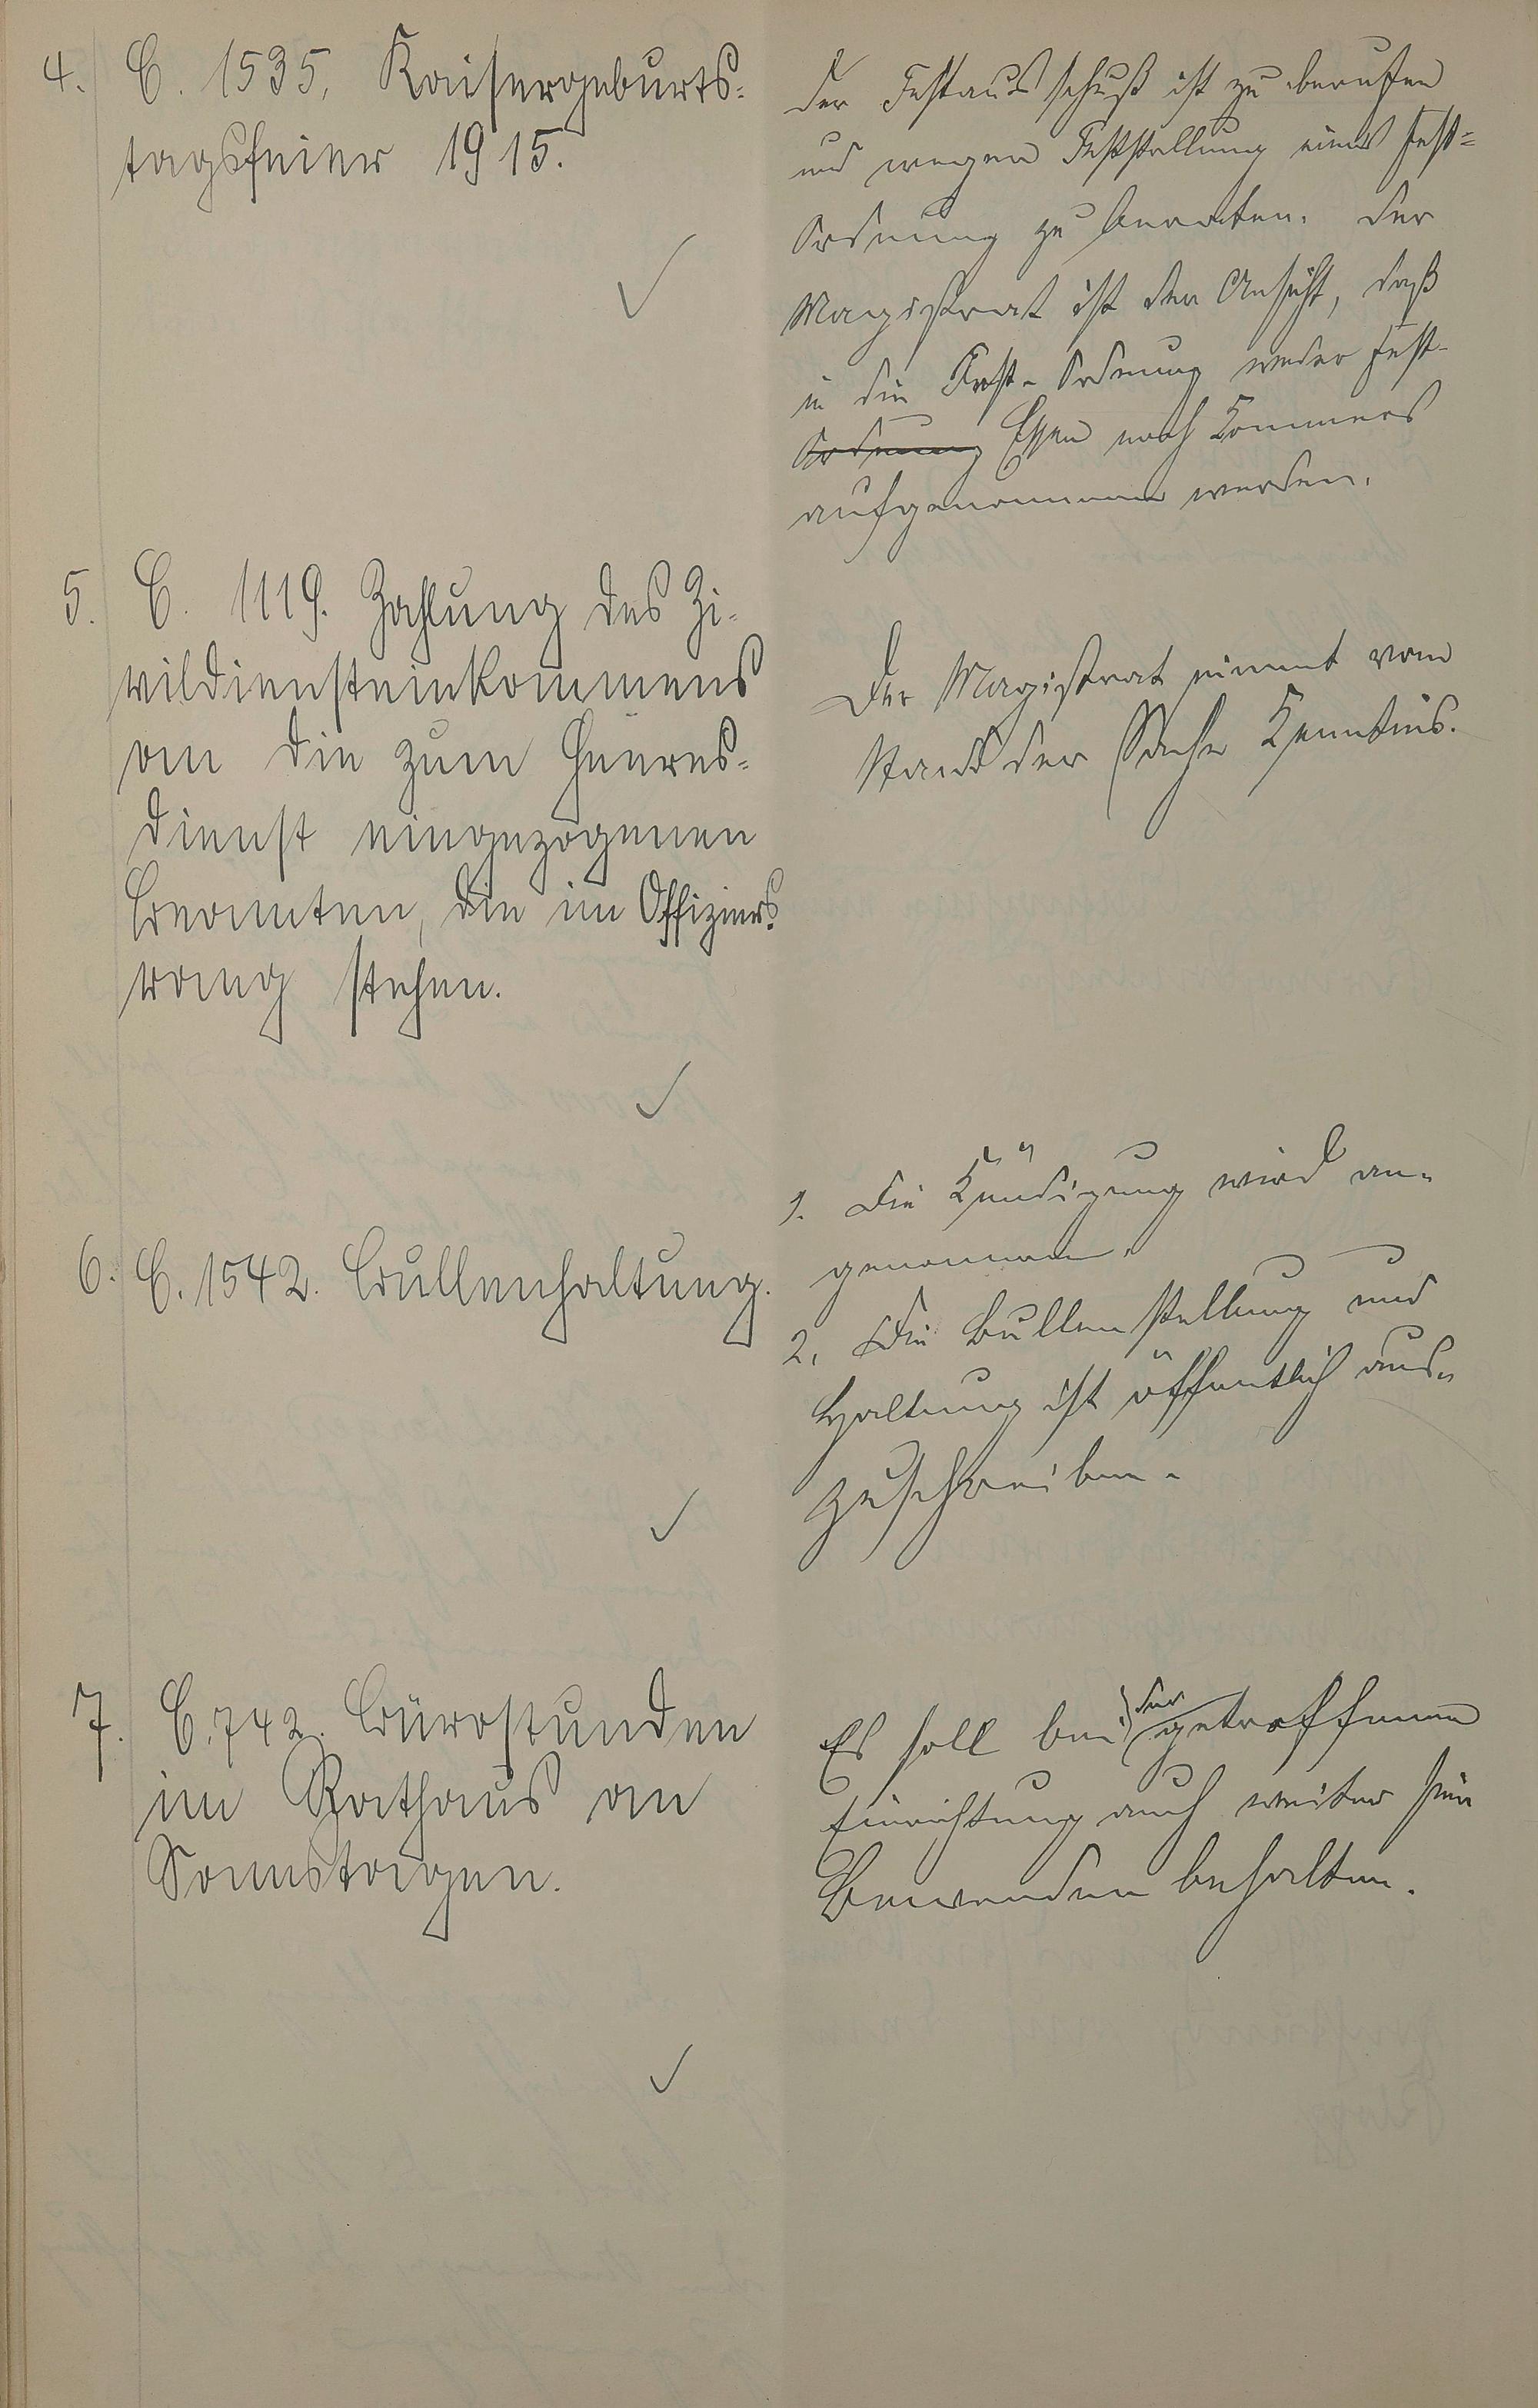 4. C. 1535. Kaisergeburts-
tagsfeier 1915.
Der Festausschuß ist zu berufen
und wegen Feststellung einer Fest=
Ordnung zu beraten. Der
Magistrat ist der Ansicht, daß
in die Fest-Ordnung weder Fest-
Ordnung Essen noch Kommers
aufgenommen werden.
5. C. 1119. Zahlung des Zi-
vildiensteinkommens
an die zum Heeres-
dienst eingezogenen
Beamten, die im Offiziers-
rang stehen.
Der Magistrat nimmt vom
Stand der Sache Kenntnis.
6. C. 1542. Bullenhaltung.
1. Die Kündigung wird an-
genommen.
2. Die Bullenstellung und
Haltung ist öffentlich aus-
zuschreiben.
7. C. 742. Bürostunden
im Rathaus an
Sonnstagen.
Es soll bei der getroffenen
Einrichtung auch weiter sein
Bewenden behalten.